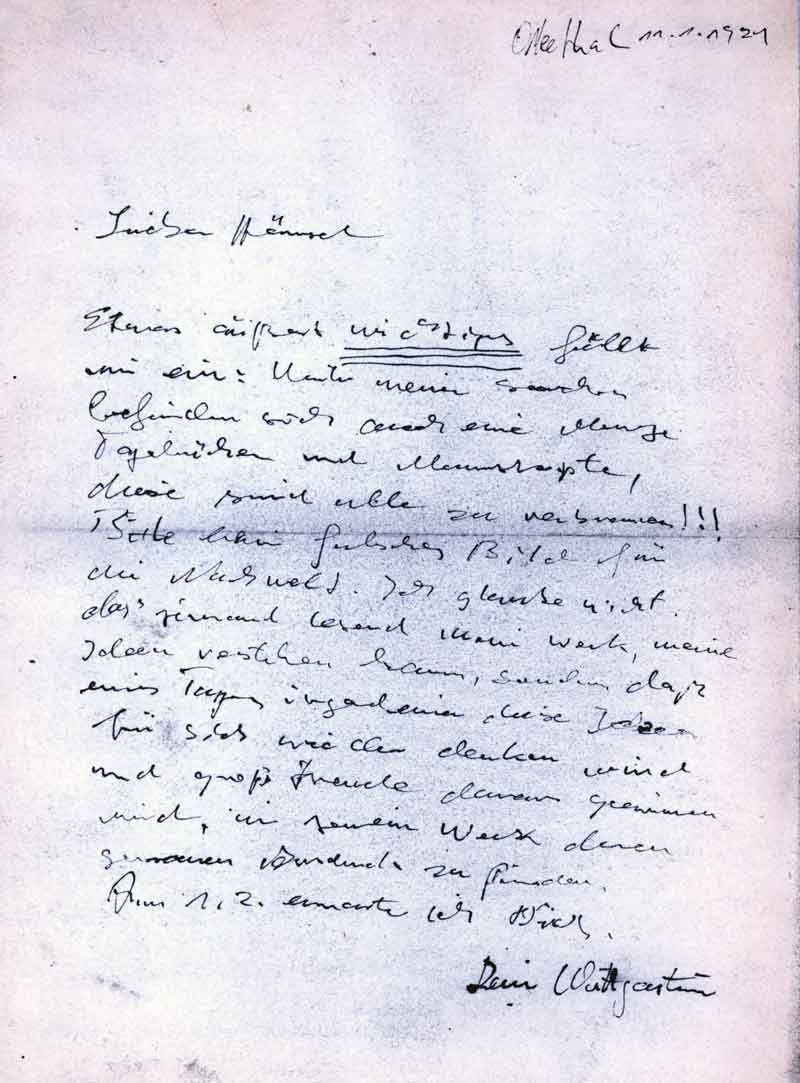 Otterthal 11.1.1921
Lieber Hänsel
Etwas äußerst wichtiges fällt
mir ein: Unter meinen Sachen
befinden sich auch eine Menge
Tagebücher und Manuskripte,
diese sind alle zu verbrennen!!!
Bitte kein falsches Bild für
die Nachwelt. Ich glaube nicht.
dass jemand lesend mein Werk, meine
Ideen verstehen kann, sondern daß
eines Tages irgendeiner diese Ideen
für sich wieder denken wird
und große Freude daran gewinnen
wird, in meinem Werk deren
genauen Ausdruck zu finden.
Am 1.2. erwarte ich Dich.
Dein Wittgenstein